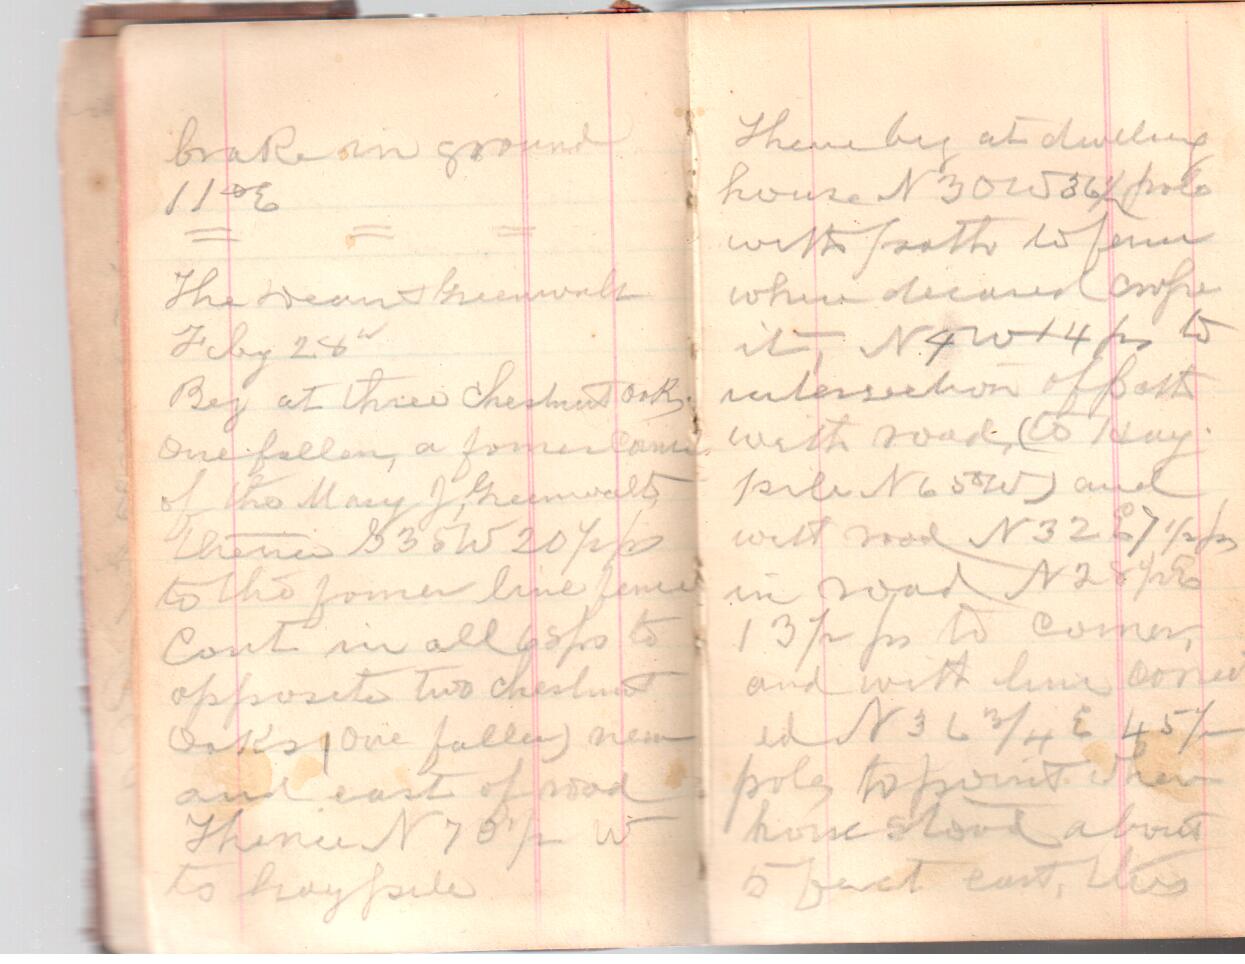 brake in ground
11° E
The Dean & Greenwalt
Feby 28"
Beg at three chestnut oak,
one fallen, a former corner
of the Mary J, Greenwalt,
Thence S 35 W 20 1/2 ps
to the former line fence
Cont in all 68 ps to
opposite two chestnut
Oaks (one fallen) near
and east of road
Thence N 70 1/2 W
to hay pile
Thence beg at dwelling
house N 30 W 36 1/2 pole
with path to fence
where deceased
it, N 4 W 14 ps to
intersection of path
with road, (to Hay
pile N 65 W) and
with road N 32 E 7 1/2 ps
in road N 28 1/2 E
13 1/2 ps to corner,
and with line
ed N 36 3/4 E 45 1/2
poles to point where
horse stood about
5 feet east, this